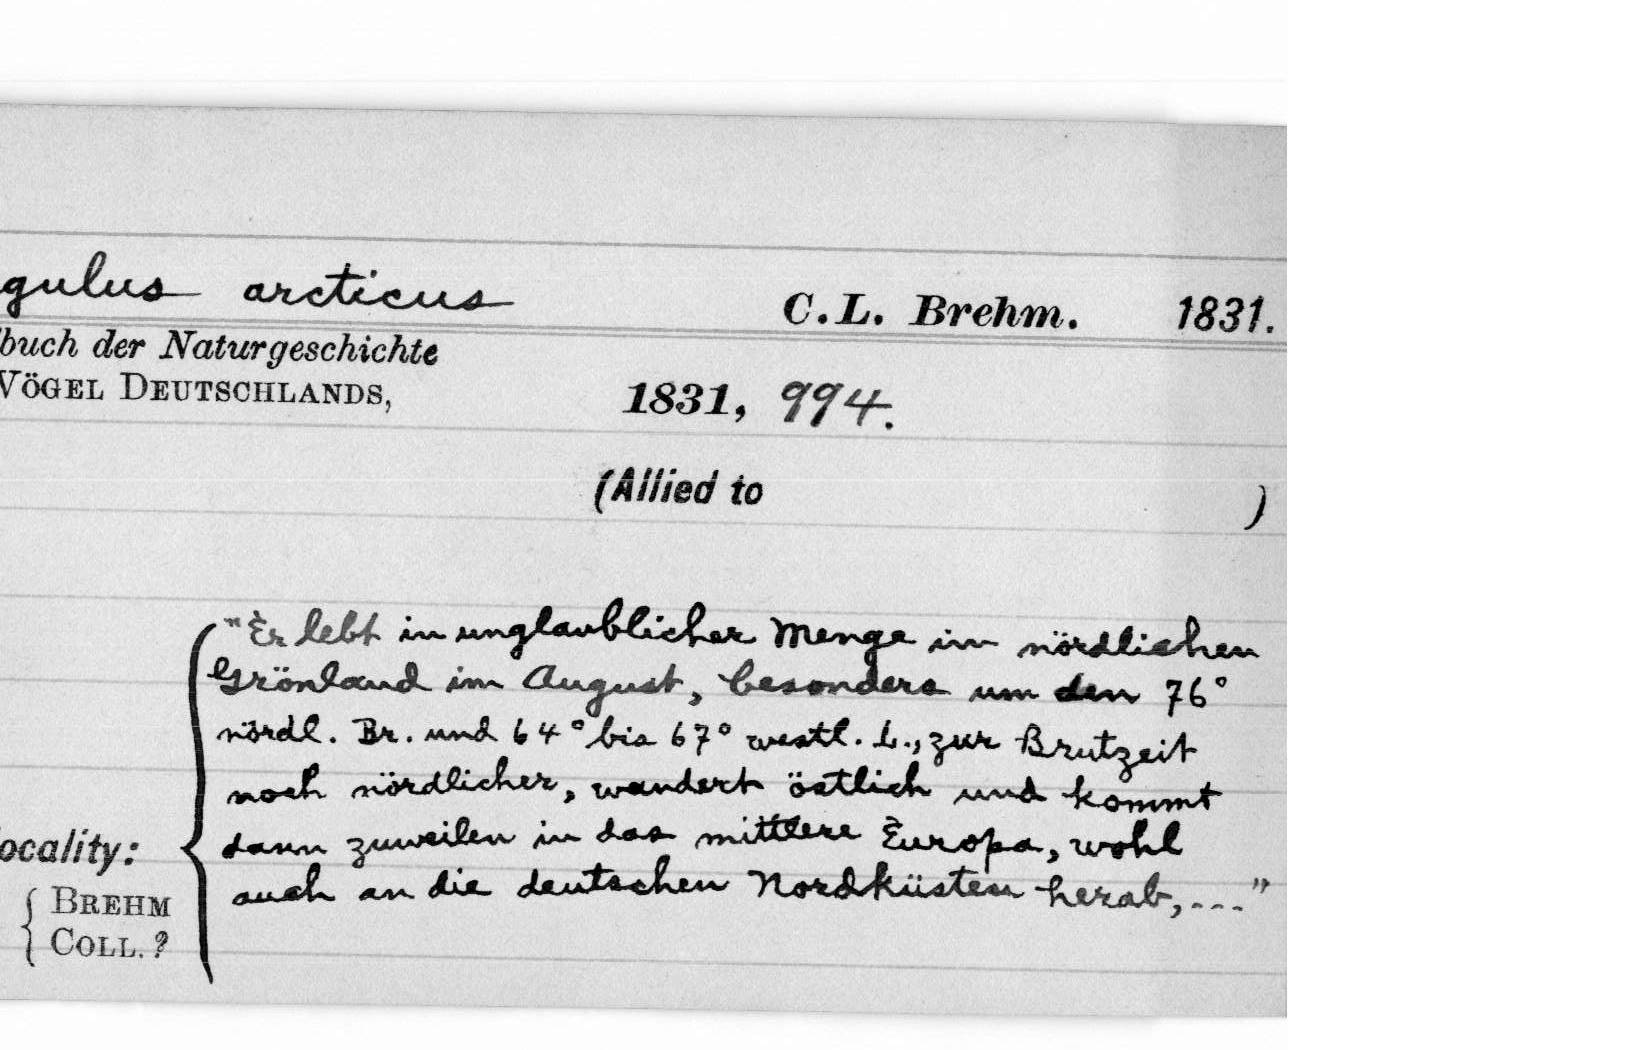 gulus arcticus C.L. Brehm. 1831.
buch der Naturgeschichte
VÖGEL DEUTSCHLANDS, 1831, 994.
(Allied to )
"Er lebt in unglaublicher Menge im nördlichen
Grönland im August, besonders um den 76°
nördl. Br. und 64° bis 67° westl. L., zur Brutzeit
noch nördlicher, wandert östlich und kommt
dann zuweilen in das mittlere Europa, wohl
auch an die deutschen Nordküsten herab,..."
ocality:
BREHM
COLL. ?